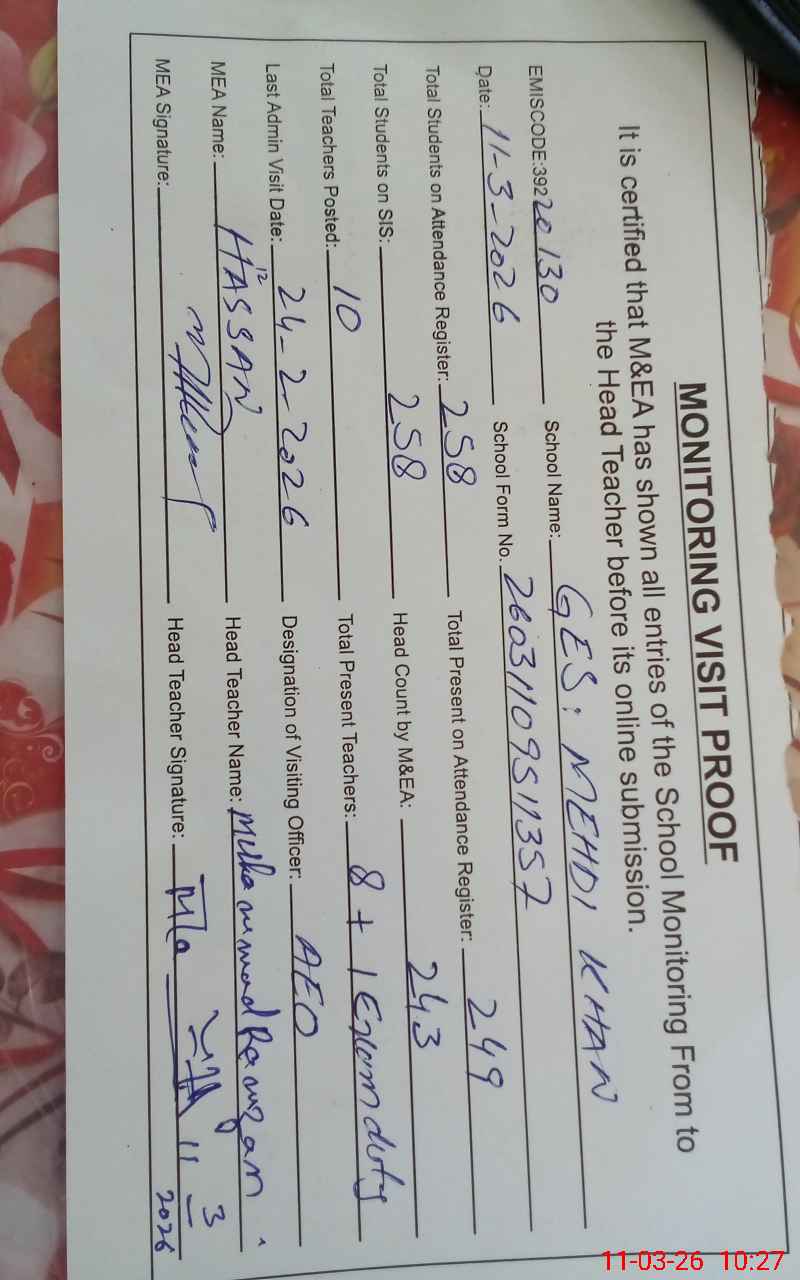 MONITORING VISIT PROOF
It is certified that M&EA has shown all entries of the School Monitoring From to
the Head Teacher before its online submission.
EMISCODE:39220130 School Name: GES: MEHDI KHAN
Date: 11-3-2026 School Form No. 26031109511357
Total Students on Attendance Register: 258 Total Present on Attendance Register: 249
Total Students on SIS: 258 Head Count by M&EA: 243
Total Teachers Posted: 10 Total Present Teachers: 8 + 1 Exam duty
Last Admin Visit Date: 24-2-2026 Designation of Visiting Officer: AEO
MEA Name: HASSAN Head Teacher Name: Muhammad Ramzan
MEA Signature: Head Teacher Signature: 11 3 2026
11-03-26 10:27